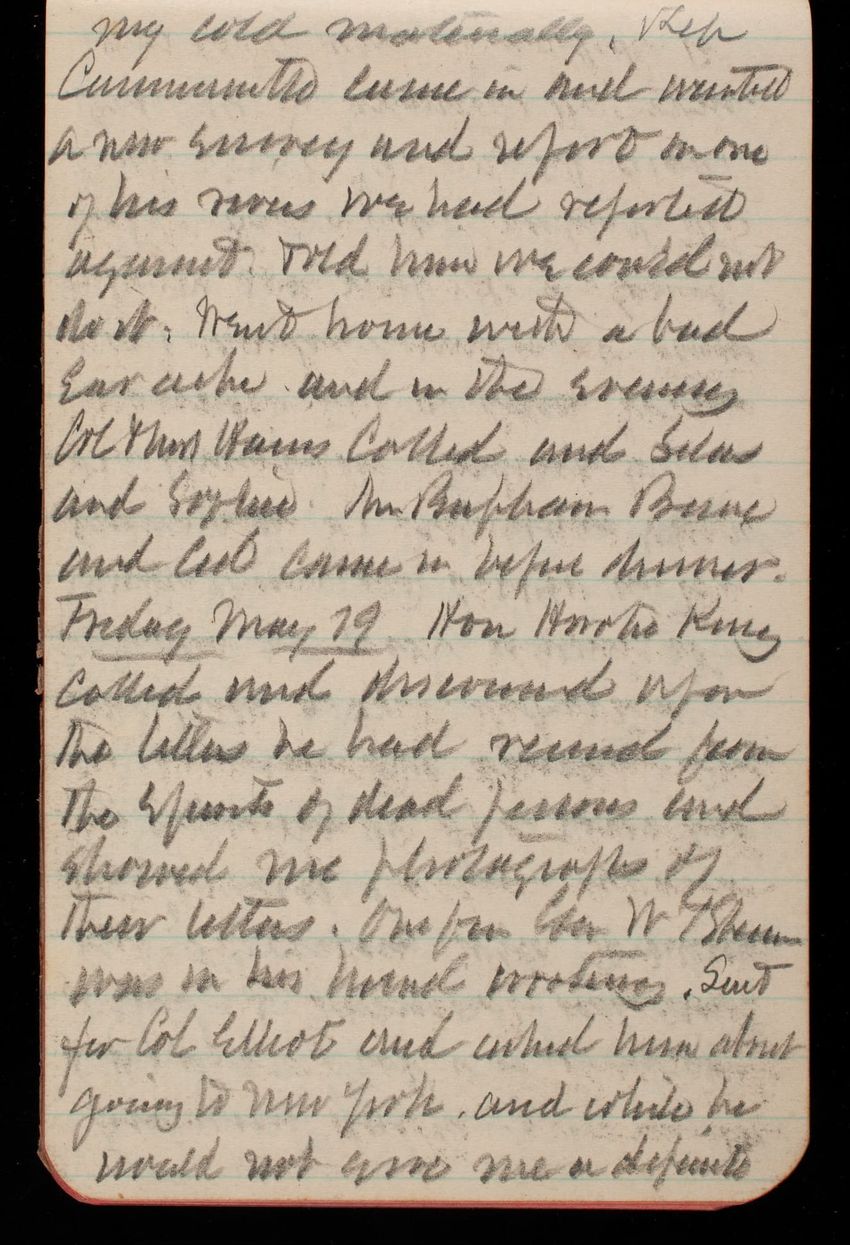 my cold materially. Rep
came in and wanted
a new survey and report on one
of his rivers we had reported
against. Told him we could not
do it. Went home with a bad
Ear ache and in the evening
Col & Mrs Hains Called and Silas
and Sophie. Mr Bupham
and Ceil came in before dinner.
Friday May 19 Hon Horatio King
called and discoursed upon
the letters he had received from
the Spirits of dead persons and
showed me photographs of
their letters. One from Gen W T Sherman
was in his hand writing. Sent
for Col Elliot and asked him about
going to New York. and while he
would not give me a definite